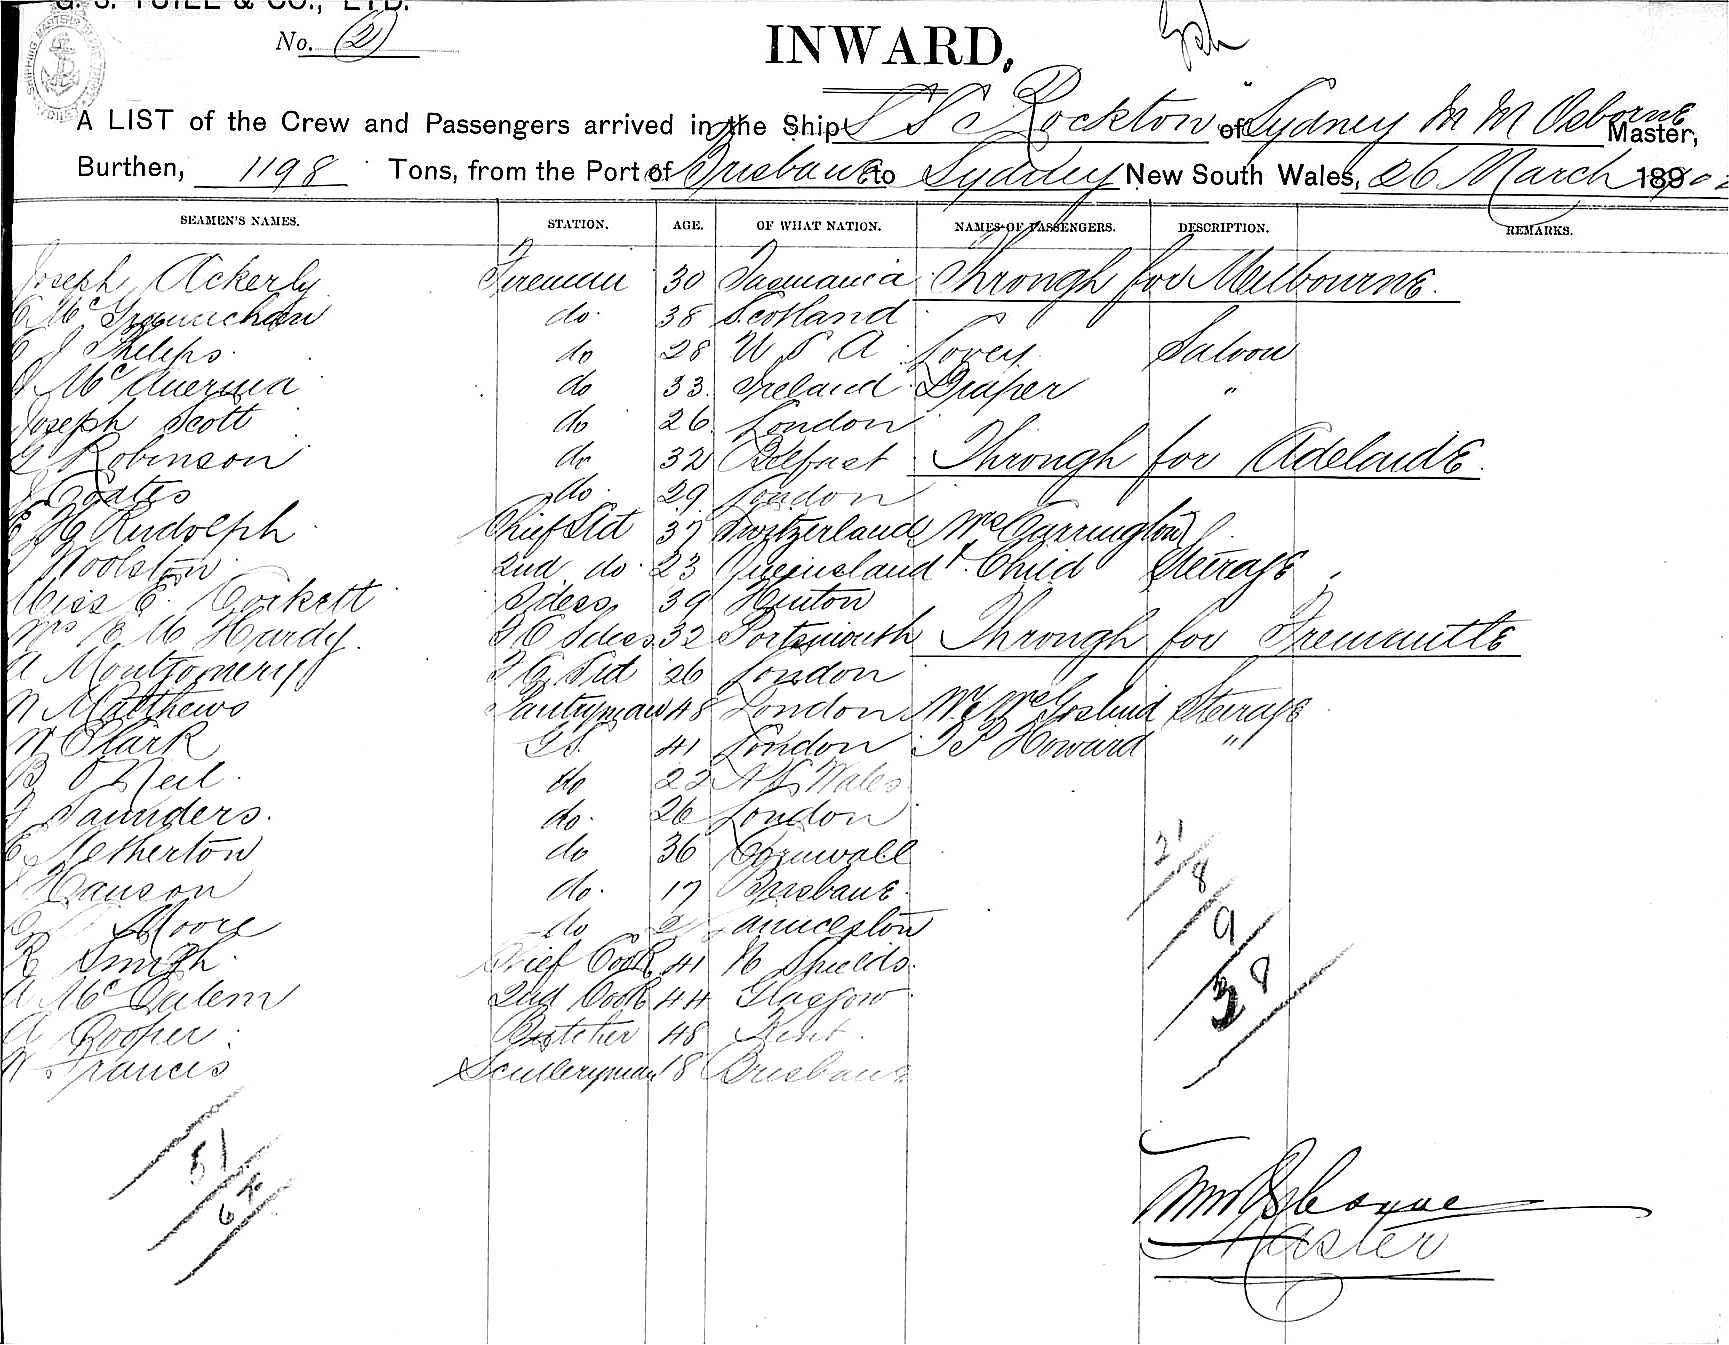 G. S. YUILL & CO., LTD.
No. (2)
INWARD.
A LIST of the Crew and Passengers arrived in the Ship S S Rockton of Sydney M M Osborne Master,
Burthen, 1198 Tons, from the Port of Brisbane to Sydney New South Wales, 26 March 1902
SEAMEN'S NAMES. STATION. AGE. OF WHAT NATION. NAMES OF PASSENGERS. DESCRIPTION. REMARKS.
Joseph Ackerly Fireman 30 Tasmania Through for Melbourne.
do. 38 Scotland
Phelps do 28 U S A Lovey Saloon
do 33 Ireland Draper "
Joseph Scott do 26 London
G Robinson do 32 Belfast Through for Adelaide.
J Coates do. 29 London
Rudolph Chief Std 37 Switzerland Mrs Carrington
Woolston 2nd do. 23 Queensland & Child Steerage
Miss E. Corkett Sdess 39 Hinton
Mrs Hardy. F C Sdess. 32 Portsmouth Through for Fremantle
A Montgomery F C Std 26 London
W Matthews Pantryman 48 London Mr & Mrs Steerage
W Clark G.S. 41 London J P Howard "
B O'Neil. do 22 N S Wales
Saunders. do. 26 London
E Netherton do 36 Cornwall
Hanson do. 17 Brisbane.
Moore do Launceston
R Smith. Chief Cook 41 N Shields.
A 2nd Cook 44 Glasgow
A Cooper Butcher 48 Kent
W Francis Sculleryman 18 Brisbane
21
8
9
38
51
64
Osborne
Master